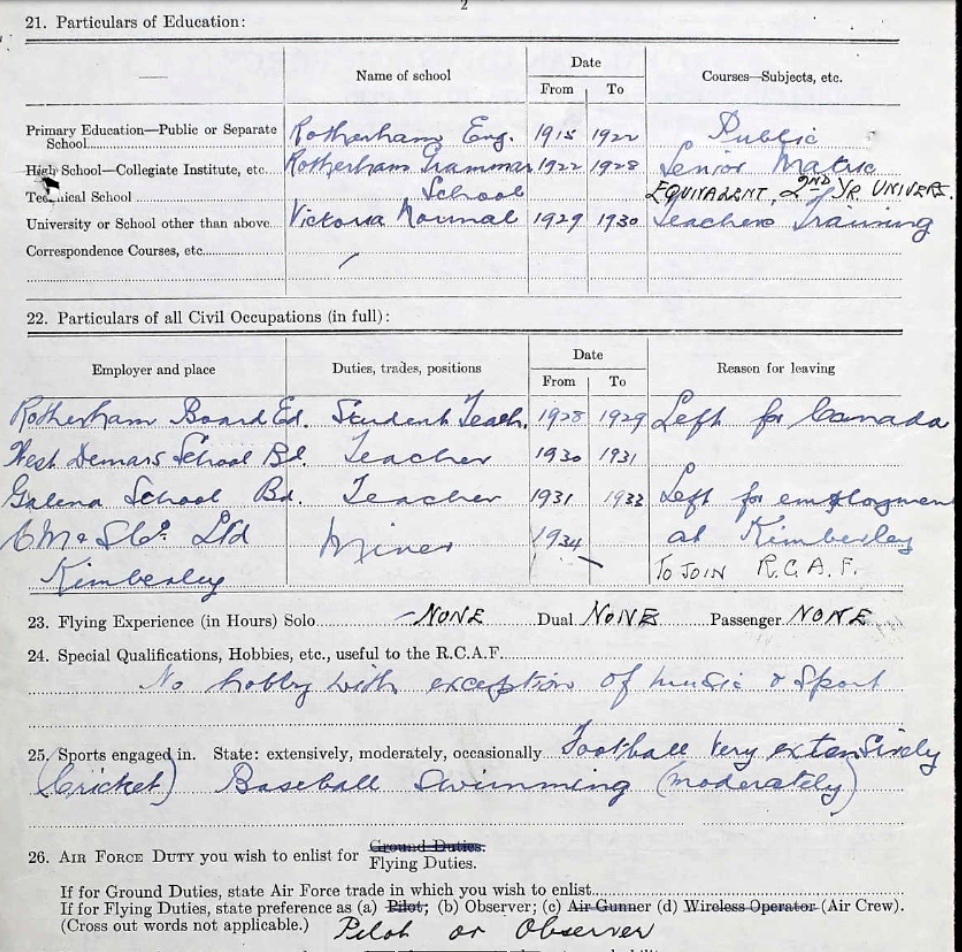 2
21. Particulars of Education:
Name of school
Date
From To
Courses—Subjects, etc.
Primary Education—Public or Separate School Rotherham Eng. 1915 1922 Public
High School—Collegiate Institute, etc. Rotherham Grammar 1922 1928 Senior Matric
Technical School School EQUIVALENT, 2ND YR. UNIVERS.
University or School other than above Victoria Normal 1929 1930 Teachers Training
Correspondence Courses, etc.
22. Particulars of all Civil Occupations (in full):
Employer and place
Duties, trades, positions
Date
From To
Reason for leaving
Rotherham Board Ed. Student Teach. 1928 1929 Left for Canada
West Demars School Bd. Teacher 1930 1931
Galena School Bd. Teacher 1931 1933 Left for employmen
C M & S Co. Ltd Miner 1934 at Kimberley
Kimberley TO JOIN R.C.A.F.
23. Flying Experience (in Hours) Solo NONE Dual NONE Passenger NONE
24. Special Qualifications, Hobbies, etc., useful to the R.C.A.F.
No hobby with exception of music & Sport
25. Sports engaged in. State: extensively, moderately, occasionally Football very extensively
(Cricket) Baseball Swimming (moderately)
26. AIR FORCE DUTY you wish to enlist for Ground Duties.
Flying Duties.
If for Ground Duties, state Air Force trade in which you wish to enlist
If for Flying Duties, state preference as (a) Pilot; (b) Observer; (c) Air Gunner (d) Wireless Operator (Air Crew).
(Cross out words not applicable.) Pilot or Observer